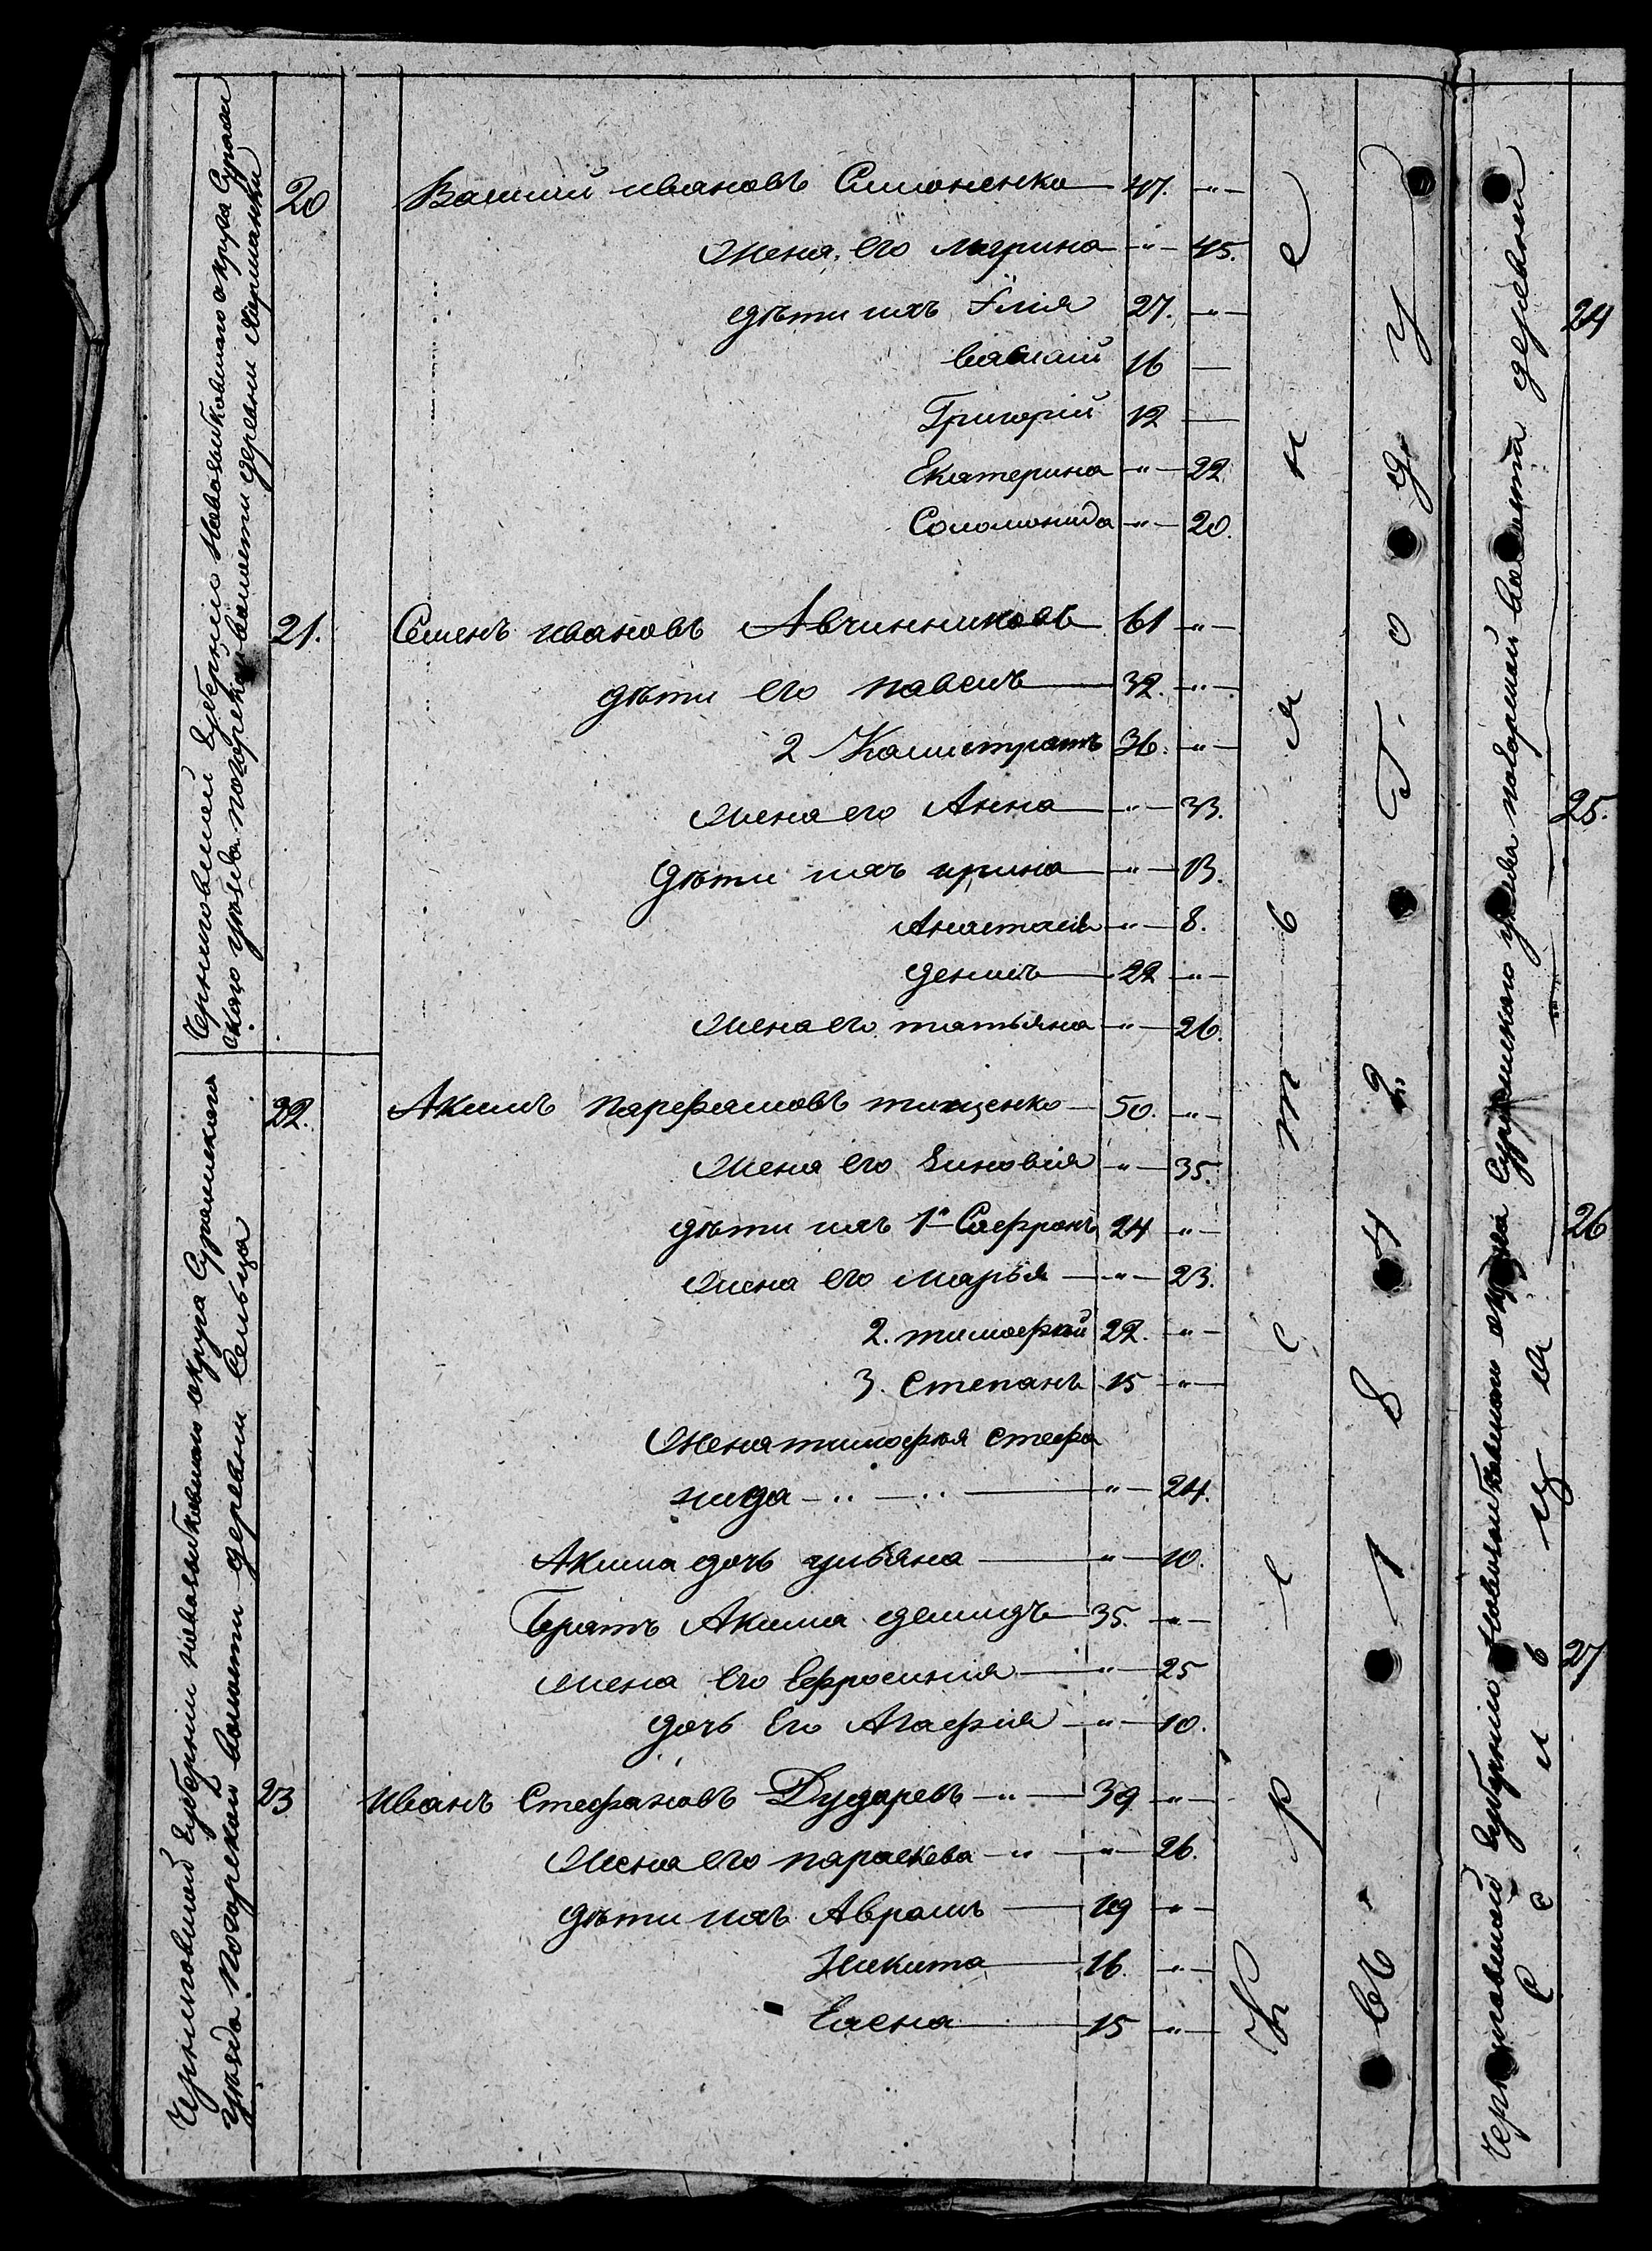 Черниговской Губерніи Новозыбковскаго округа Сураж
скаго уѣзда погорской волости деревни
20 Василій ивановъ Симоненко 47. "
Жена его марина " 45.
дѣти ихъ Iлія 27. "
василій 16 —
Григорій 12 —
Екатерина " 22
Соломонида " 20.
21. Семенъ ивановъ Авчинниковъ 61 "
дѣти его павелъ 32. "
2 Калистратъ 36. "
Жена его Анна " 33.
Дѣти ихъ ирина " 13.
Анастасія " 8.
денисъ 22 "
Жена его татьяна " 26.
Черниговской Губерніи новозыбковскаго округа Суражскаго
уѣзда Погорской волости деревни Сельца
22. Акимъ парфамовъ тищенко 50. "
Жена его Зиновія " 35.
дѣти ихъ 1й Сафронъ 24 "
Жена его марья " 23.
2. тимофей 22. "
3. Степанъ 15 "
Жена тимофея стефа
нида " 24.
Акима дочь ульяна " 10.
Братъ Акима демидъ 35. "
Жена его Ефросинія " 25
дочь Его Агафия " 10.
23 иванъ Стефановъ Дударевъ 39 "
Жена его параскева " 26.
дѣти ихъ Аврамъ 19 "
Никита 16. "
Елена 15 "
Крестьяне
Въ 1842 Году
Черниговской Губерніи Новозыбковскаго округа Суражскаго уѣзда погорской волости деревни
24
25.
26
27